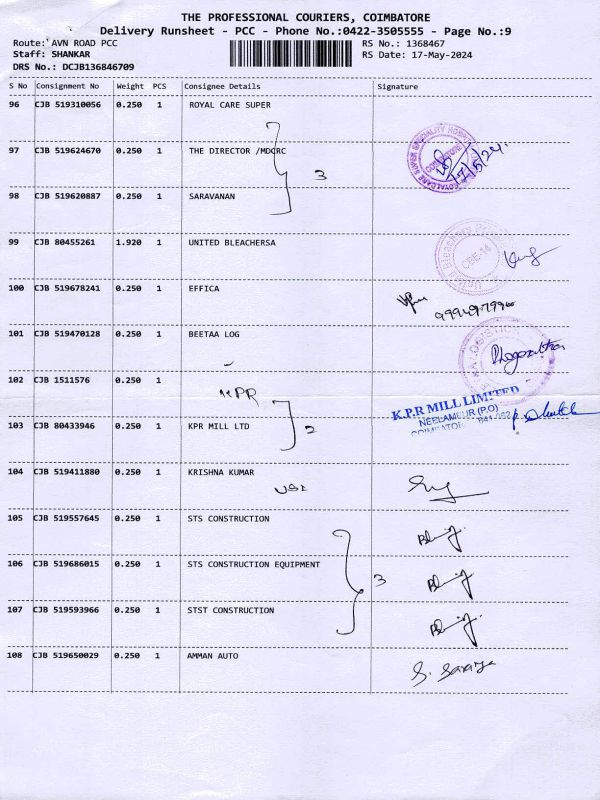 THE PROFESSIONAL COURIERS, COIMBATORE
Delivery Runsheet - PCC - Phone No.:0422-3505555 - Page No.:9
Route: AVN ROAD PCC RS No.: 1368467
Staff: SHANKAR RS Date: 17-May-2024
DRS No.: DCJB136846709
S No Consignment No Weight PCS Consignee Details Signature
96 CJB 519310056 0.250 1 ROYAL CARE SUPER
97 CJB 519624670 0.250 1 THE DIRECTOR /MDCRC
3
17/5/24
98 CJB 519620887 0.250 1 SARAVANAN
99 CJB 80455261 1.920 1 UNITED BLEACHERSA
CBE-14
100 CJB 519678241 0.250 1 EFFICA
101 CJB 519470128 0.250 1 BEETAA LOG
102 CJB 1511576 0.250 1
KPR
K.P.R MILL LIMITED
NEELAMBUR (P.O)
103 CJB 80433946 0.250 1 KPR MILL LTD 2
104 CJB 519411880 0.250 1 KRISHNA KUMAR
105 CJB 519557645 0.250 1 STS CONSTRUCTION
106 CJB 519686015 0.250 1 STS CONSTRUCTION EQUIPMENT
3
107 CJB 519593966 0.250 1 STST CONSTRUCTION
108 CJB 519650029 0.250 1 AMMAN AUTO